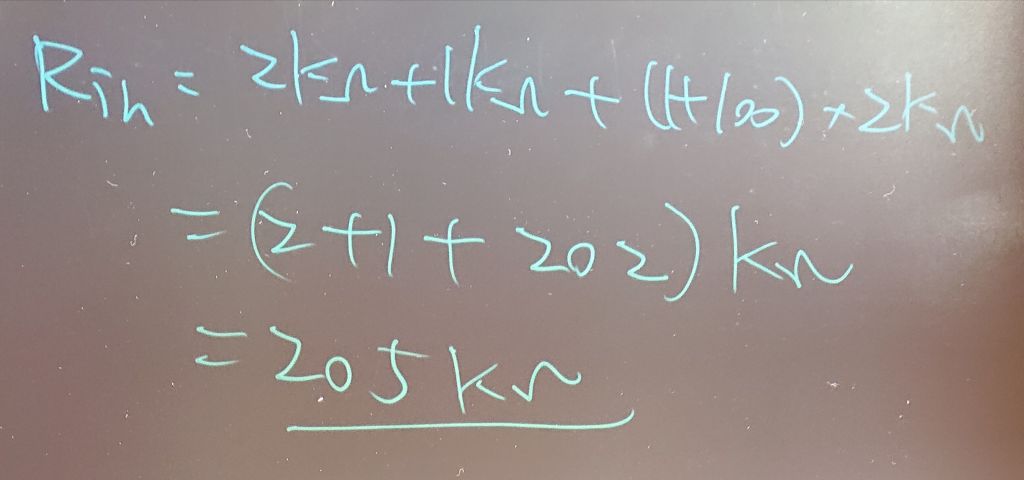 Rin = 2kΩ + 1kΩ + (1+100) × 2kΩ
= (2 + 1 + 202) kΩ
= 205 kΩ